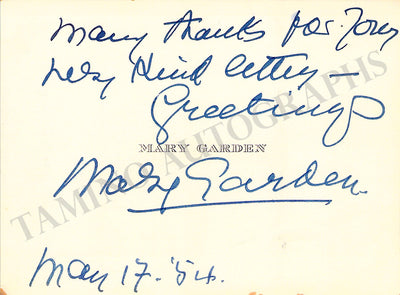 Many thanks for your
very kind letter –
Greetings
MARY GARDEN
Mary Garden.
May 17. '54.
TAMINO AUTOGRAPHS